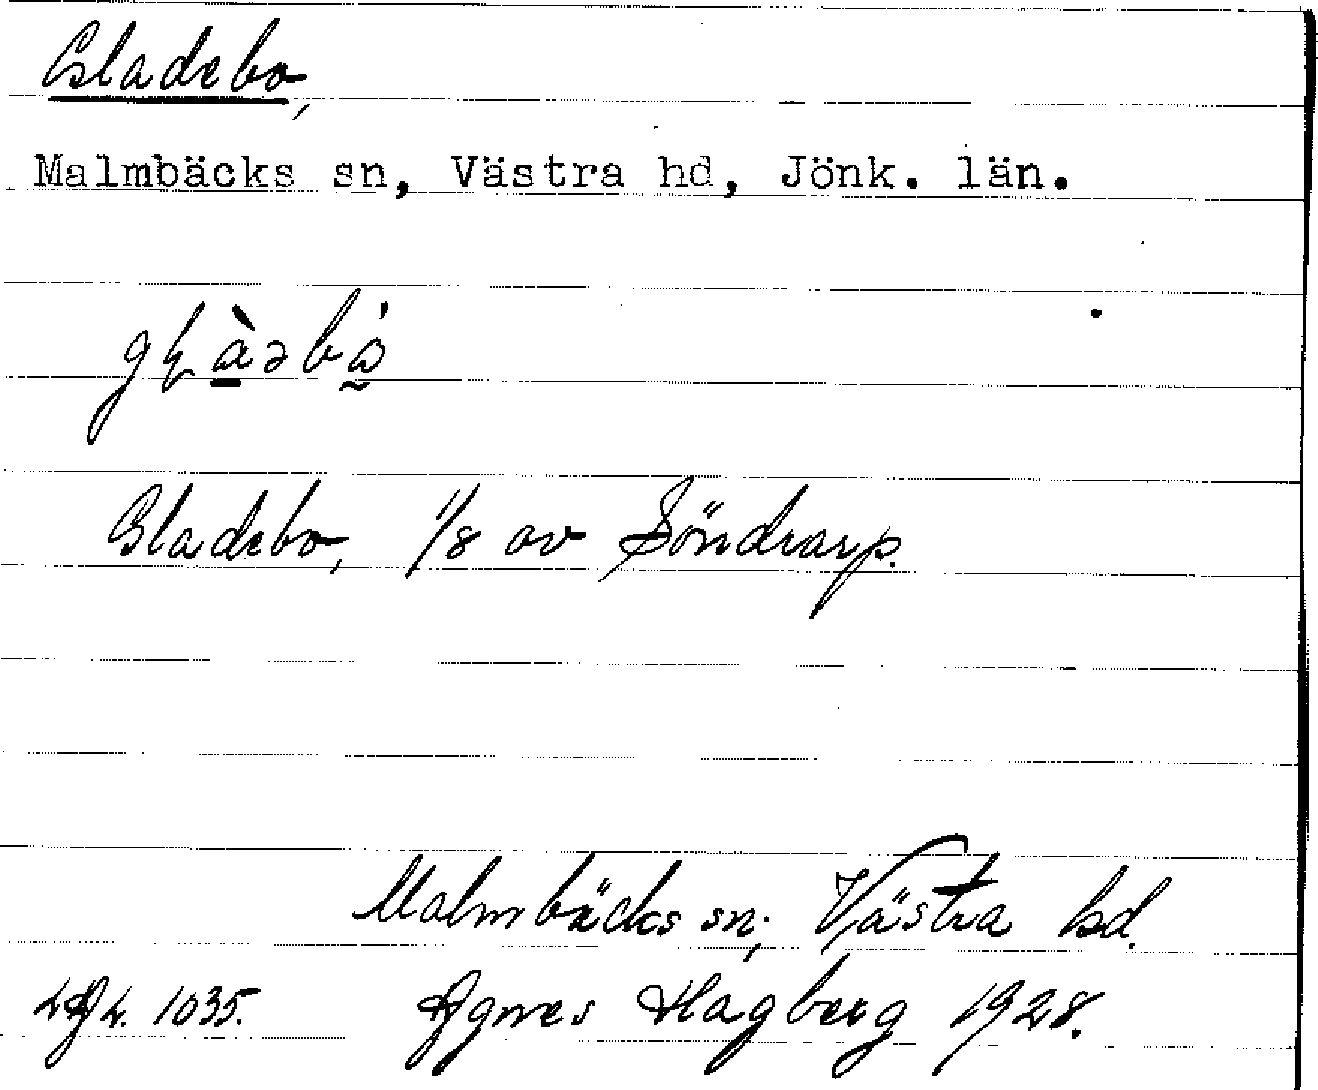 Gladebo,
Malmbäcks sn, Västra hd, Jönk. län.
Gladebo, 1/8 av Söndrarp.
Malmbäcks sn, Västra hd.
1035. Agnes Hagberg 1928.